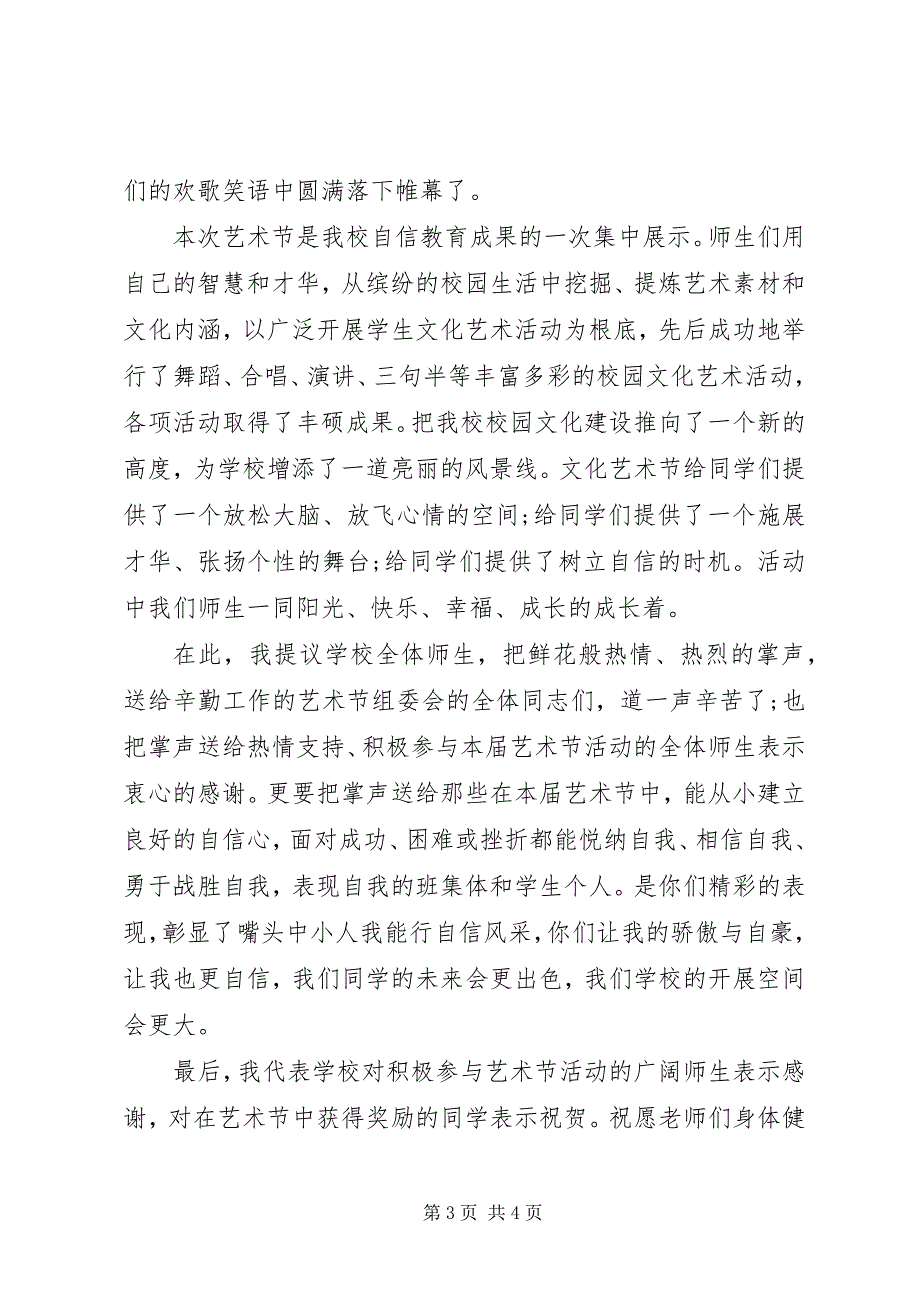 们的欢歌笑语中圆满落下帷幕了。
本次艺术节是我校自信教育成果的一次集中展示。师生们用
自己的智慧和才华，从缤纷的校园生活中挖掘、提炼艺术素材和
文化内涵，以广泛开展学生文化艺术活动为根底，先后成功地举
行了舞蹈、合唱、演讲、三句半等丰富多彩的校园文化艺术活动，
各项活动取得了丰硕成果。把我校校园文化建设推向了一个新的
高度，为学校增添了一道亮丽的风景线。文化艺术节给同学们提
供了一个放松大脑、放飞心情的空间;给同学们提供了一个施展
才华、张扬个性的舞台;给同学们提供了树立自信的时机。活动
中我们师生一同阳光、快乐、幸福、成长的成长着。
在此，我提议学校全体师生，把鲜花般热情、热烈的掌声，
送给辛勤工作的艺术节组委会的全体同志们，道一声辛苦了;也
把掌声送给热情支持、积极参与本届艺术节活动的全体师生表示
衷心的感谢。更要把掌声送给那些在本届艺术节中，能从小建立
良好的自信心，面对成功、困难或挫折都能悦纳自我、相信自我、
勇于战胜自我，表现自我的班集体和学生个人。是你们精彩的表
现，彰显了嘴头中小人我能行自信风采，你们让我的骄傲与自豪，
让我也更自信，我们同学的未来会更出色，我们学校的开展空间
会更大。
最后，我代表学校对积极参与艺术节活动的广阔师生表示感
谢，对在艺术节中获得奖励的同学表示祝贺。祝愿老师们身体健
第 3 页 共 4 页